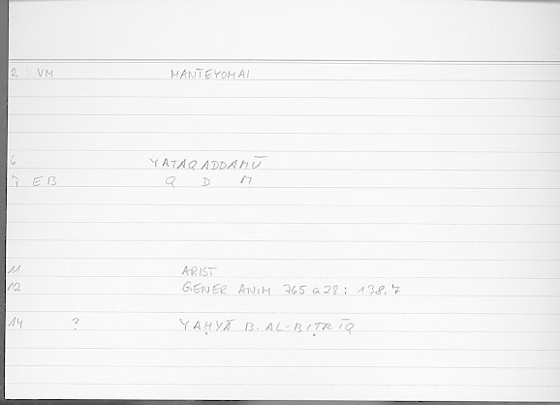 2 VM MANTEYOMAI
6 YATAQADDAMŪ
7 EB Q D M
11 ARIST
12 GENER ANIM 765 a 28 : 138.7
14 ? YAḤYĀ B. AL-BIṬRĪQ